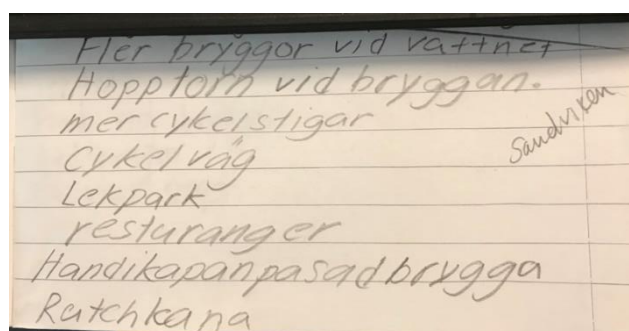 Fler bryggor vid vattnet
Hopptorn vid bryggan.
mer cykelstigar
Sandviken
Cykelväg
Lekpark
resturanger
Handikapanpasad brygga
Rutchkana